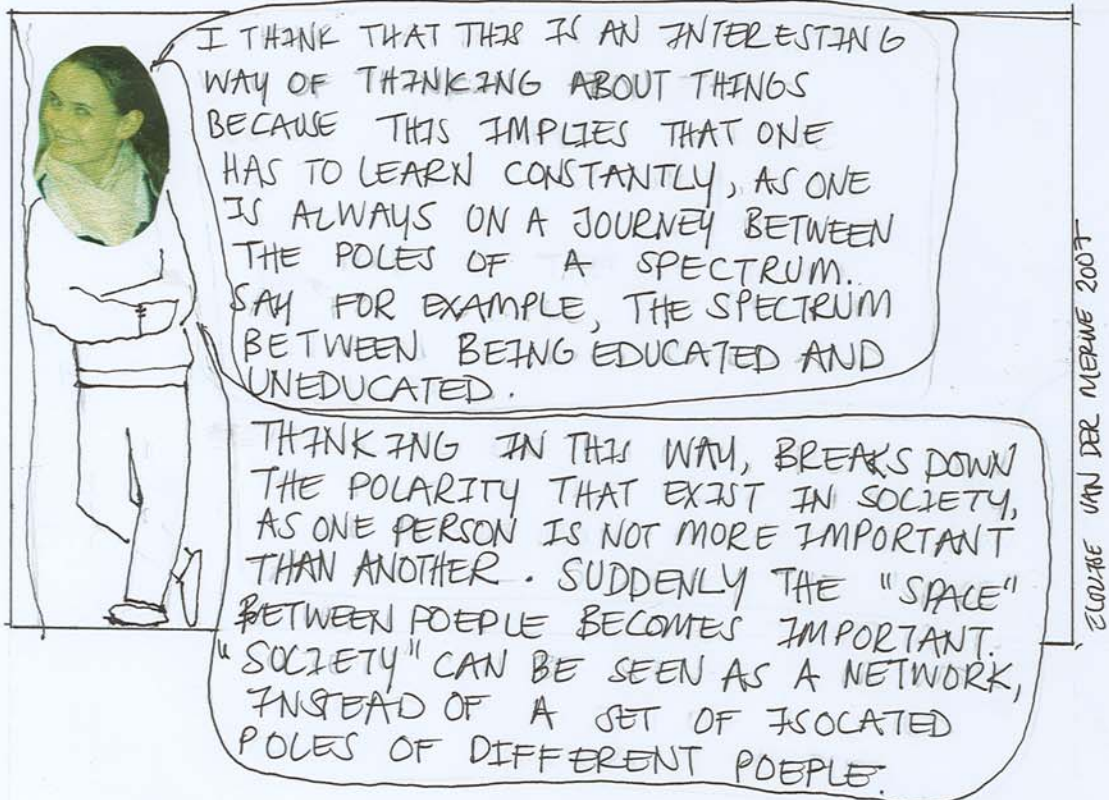 I THINK THAT THIS IS AN INTERESTING
WAY OF THINKING ABOUT THINGS
BECAUSE THIS IMPLIES THAT ONE
HAS TO LEARN CONSTANTLY, AS ONE
IS ALWAYS ON A JOURNEY BETWEEN
THE POLES OF A SPECTRUM.
SAY FOR EXAMPLE, THE SPECTRUM
BETWEEN BEING EDUCATED AND
UNEDUCATED.
THINKING IN THIS WAY, BREAKS DOWN
THE POLARITY THAT EXIST IN SOCIETY,
AS ONE PERSON IS NOT MORE IMPORTANT
THAN ANOTHER. SUDDENLY THE "SPACE"
BETWEEN POEPLE BECOMES IMPORTANT.
"SOCIETY" CAN BE SEEN AS A NETWORK,
INSTEAD OF A SET OF ISOLATED
POLES OF DIFFERENT POEPLE.
VAN DER MERWE 2007